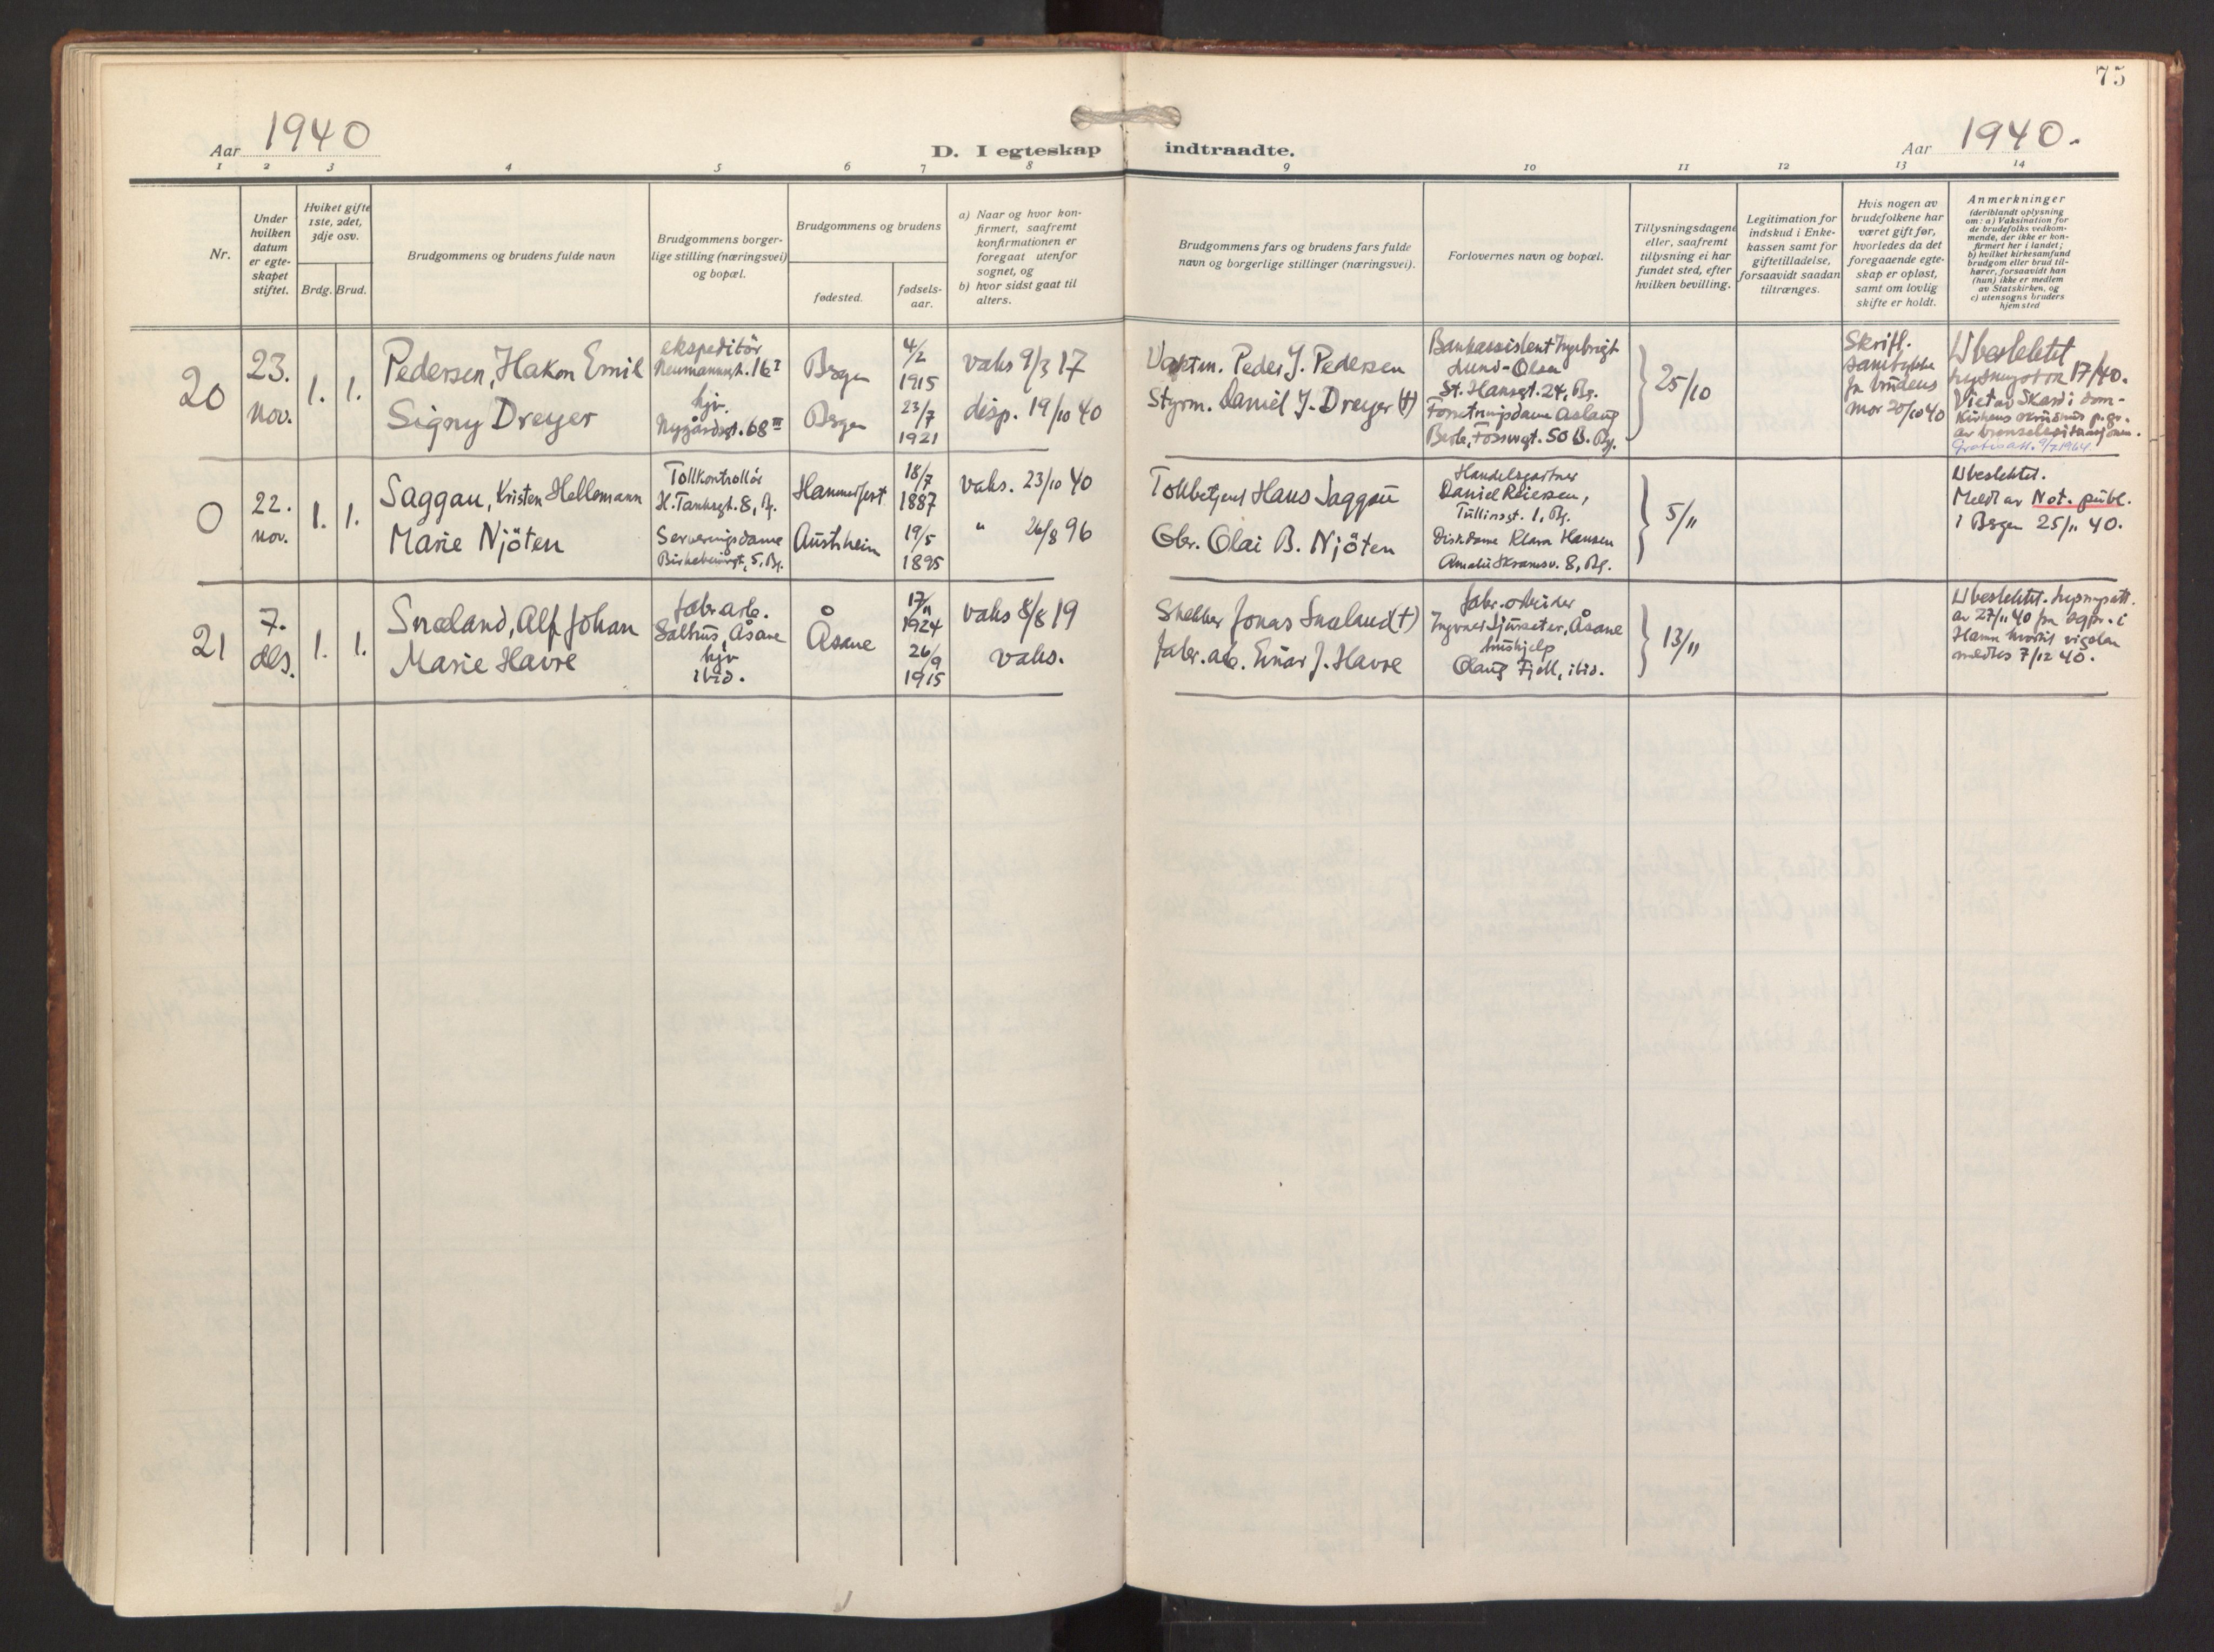 75
Aar 1940
D. I egteskap indtraadte.
Aar 1940.
1 2 3 4 5 6 7 8 9 10 11 12 13 14
Nr.
Under hvilken datum er egteskapet stiftet.
Hvilket gifte 1ste, 2det, 3dje osv.
Brdg. Brud.
Brudgommens og brudens fulde navn
Brudgommens borger-
lige stilling (næringsvei)
og bopæl.
Brudgommens og brudens
fødested.
fødsels-
aar.
a) Naar og hvor kon-
firmert, saafremt
konfirmationen er
foregaat utenfor
sognet, og
b) hvor sidst gaat til
alters.
Brudgommens fars og brudens fars fulde
navn og borgerlige stillinger (næringsvei).
Forlovernes navn og bopæl.
Tillysningsdagene
eller, saafremt
tillysning ei har
fundet sted, efter
hvilken bevilling.
Legitimation for
indskud i Enke-
kassen samt for
giftetilladelse,
forsaavidt saadan
tiltrænges.
Hvis nogen av
brudefolkene har
været gift før,
hvorledes da det
foregaaende egte-
skap er opløst,
samt om lovlig
skifte er holdt.
Anmerkninger
(deriblandt oplysning
om: a) Vaksination for
de brudefolks vedkom-
mende, der ikke er kon-
firmert her i landet;
b) hvilket kirkesamfund
brudgom eller brud til-
hører, forsaavidt han
(hun) ikke er medlem
av Statskirken, og
c) utensogns bruders
hjemsted
20
23.
nov.
1. 1.
Pedersen, Hakon Emil
Signy Dreyer
ekspeditör
Neumannsgt. 16 I
hjv.
Nygårdsgt. 68 III
Bergen
Bergen
4/2
1915
23/7
1921
vaks 9/3 17
disp. 19/10 40
Vaktm. Peder J. Pedersen
Styrm. Daniel J. Dreyer (†)
Bankassistent Ingebrigt
Lund-Olsen
St. Hansgt. 24, Bg.
Forretningsdame Aslaug
Berle, Fosswgt. 50 B. Bg.
25/10
Skriftl.
samtykke
fra brudens
mor 20/10 40
Ubeslektet
17/ 40.
Viet av Skard i dom-
kirkens
av
9/7 1964
0
22.
nov.
1. 1.
Saggau, Kristen Hellemann
Marie Njöten
Tollkontrollör
H. Tanksgt. 8, Bg.
Serveringsdame
Birkebeinergt. 5, Bg.
Hammerfest
Austrheim
18/7
1887
19/5
1895
vaks. 23/10 40
" 26/8 96
Tollbetjent Hans Saggau
Gbr. Olai B. Njöten
Handelsgartner
Daniel Reiersen,
Tullinsgt. 1, Bg.
Diskdame Klara Hansen
Amalie Skramsv. 8, Bg.
5/11
Ubeslektet.
Meldt av Not. publ.
i Bergen 25/11 40.
21
7.
des.
1. 1.
Snæland, Alf Johan
Marie Havre
fabr.arb.
Salhus, Åsane
hjv
ibid.
Åsane
17/11
1924
26/9
1915
vaks 8/8 19
vaks.
Snekker Jonas Snæland (†)
fabr.arb. Einar J. Havre
fabr.arbeider
Ingvald Sjursæter, Åsane
hushjelp
Olaug Fjell, ibid.
13/11
Ubeslektet.
av 27/11 40 fra sgpr. i
Hamre hvortil vigslen
meldtes 7/12 40.